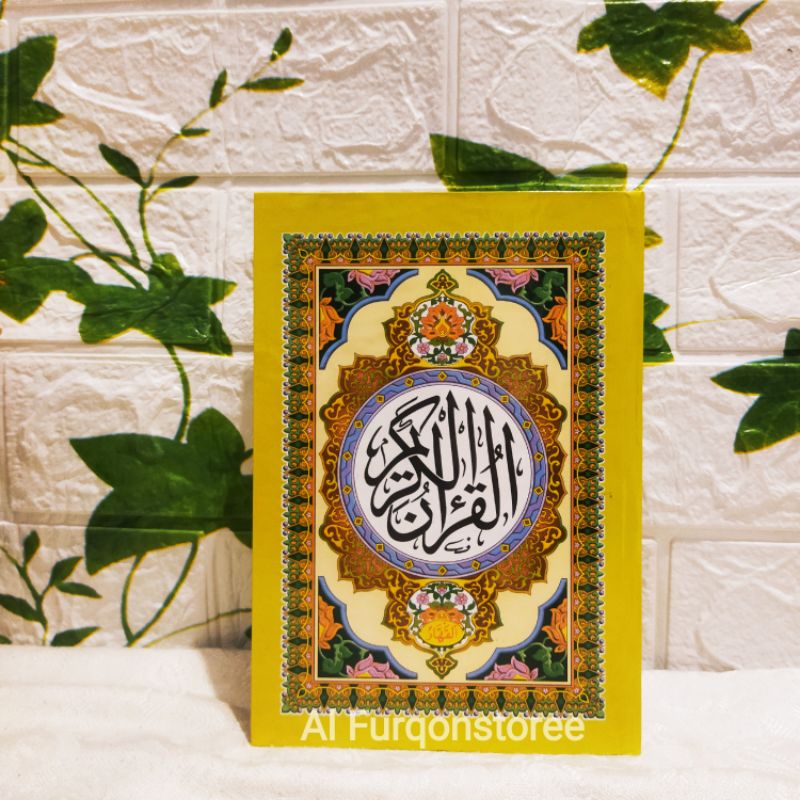 القرآن الكريم
Al Furqonstoree